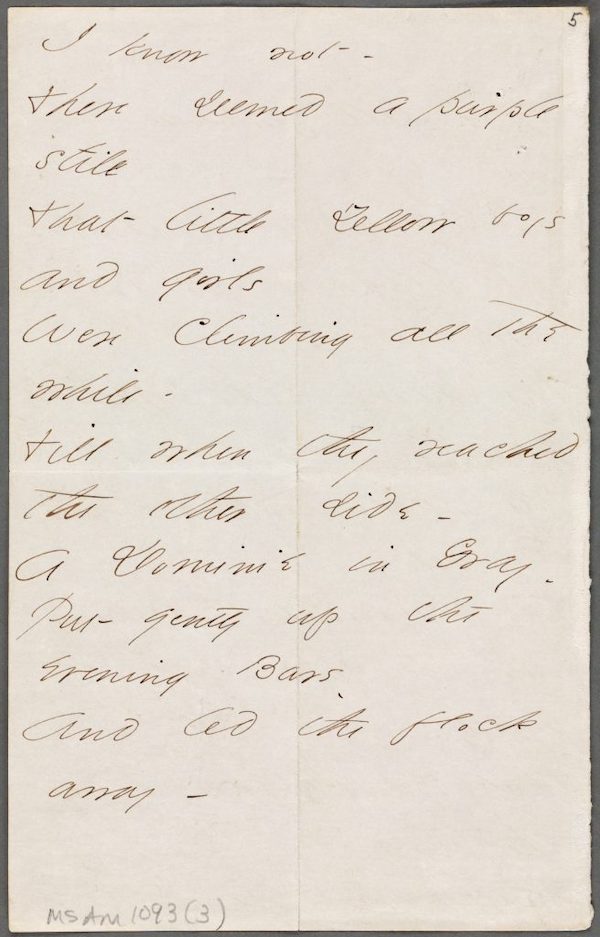 5
I know not -
There seemed a purple
stile
That little Yellow boys
and girls
Were climbing all the
while -
Till when they reached
the other side -
A Dominie in Gray -
Put gently up the
Evening Bars
And led the flock
away -
MS Am 1093 (3)